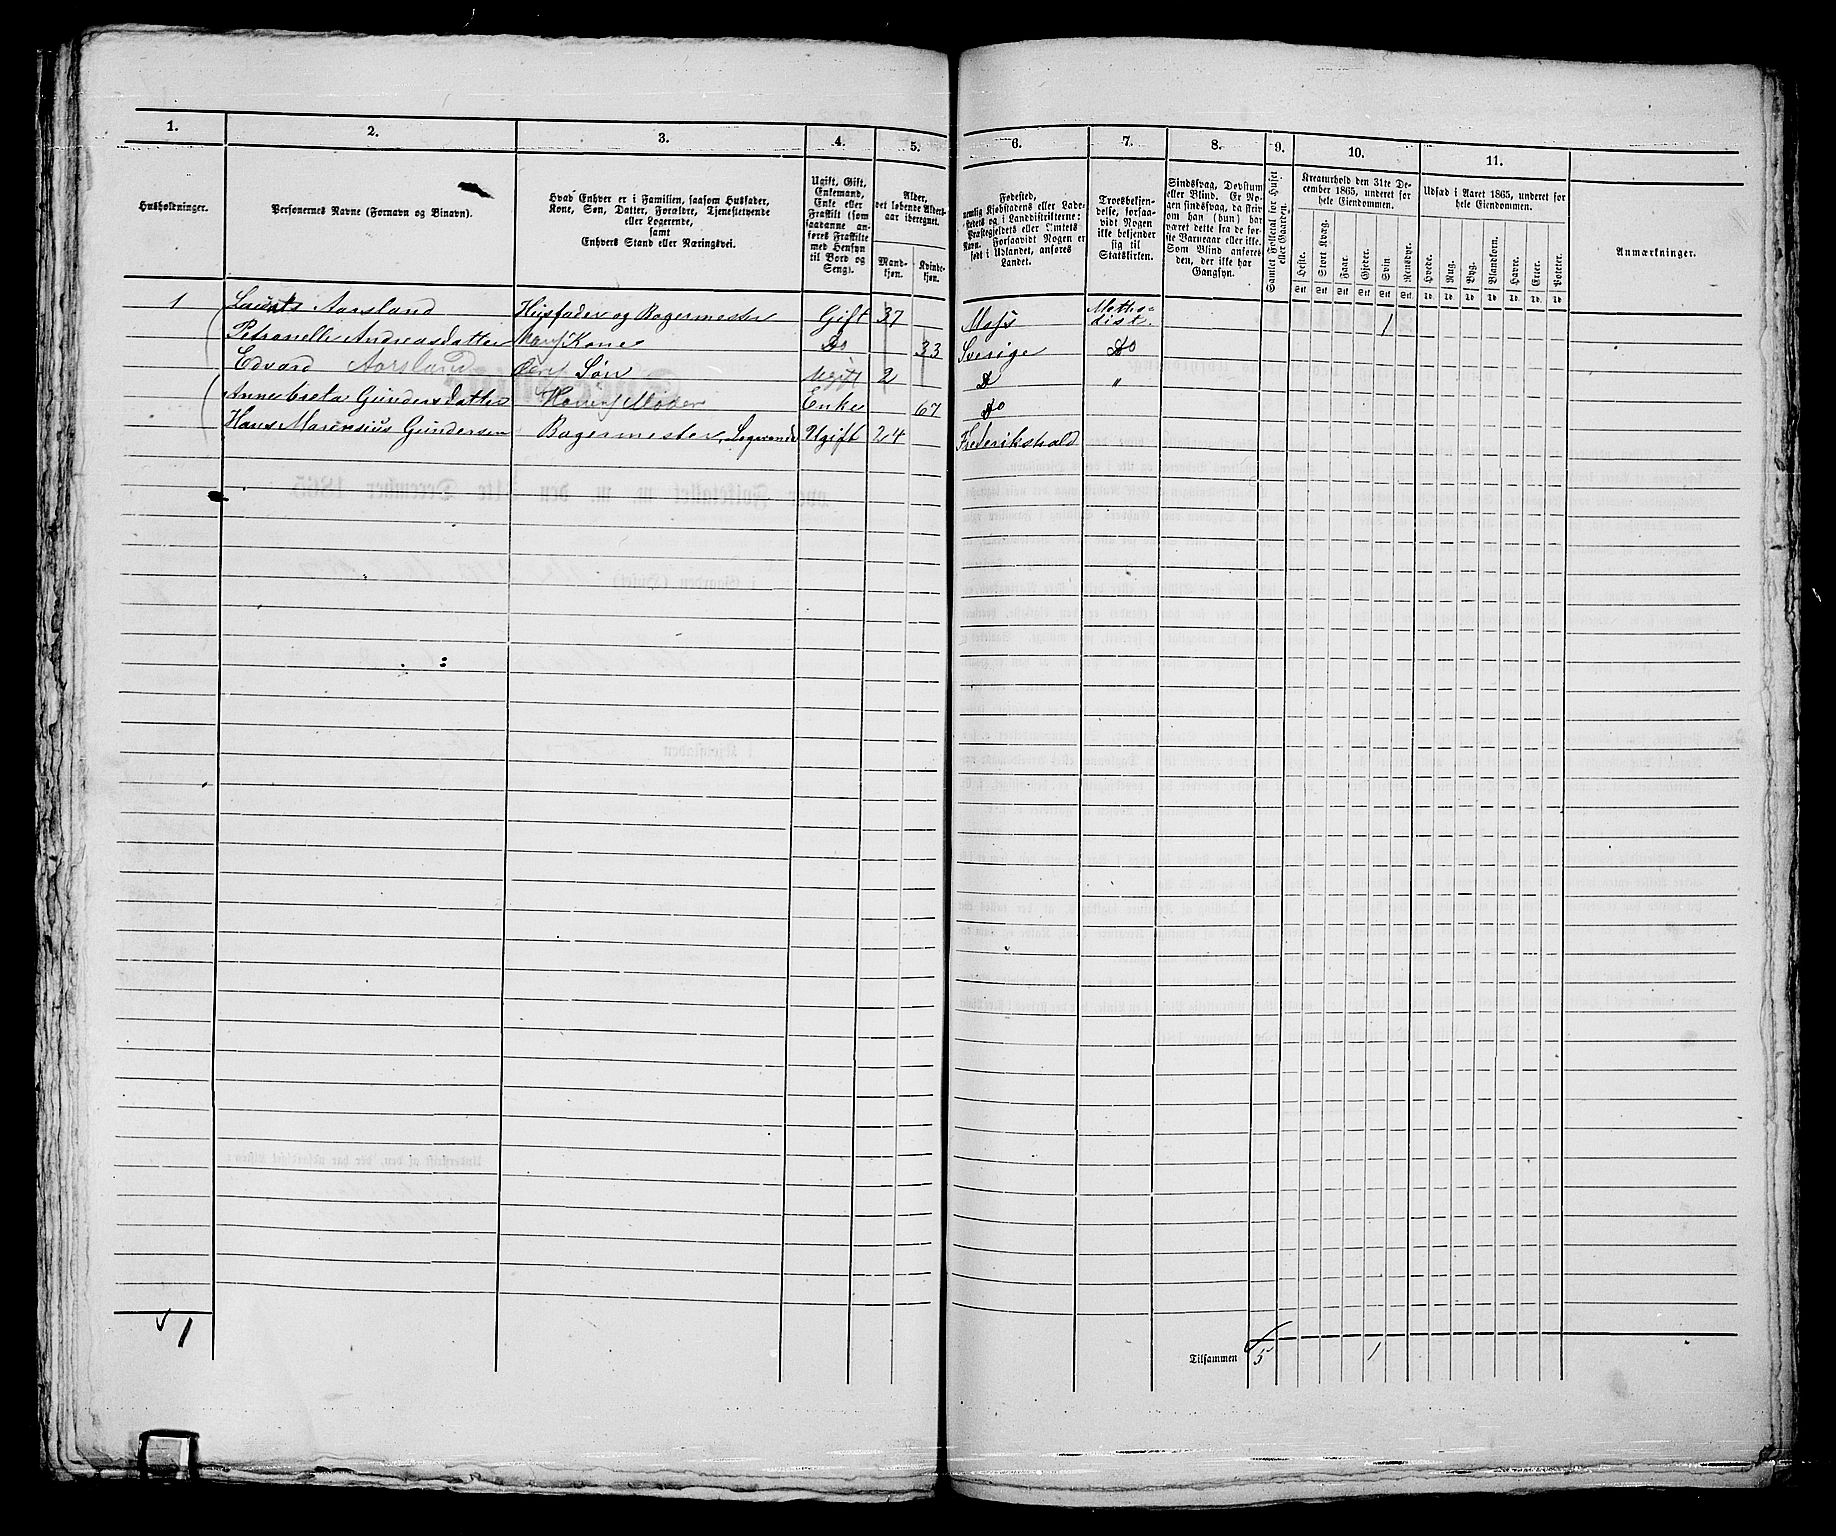 1. 2. 3. 4. 5. 6. 7. 8. 9. 10. 11.
Husholdninger.
Personernes Navne (Fornavn og Binavn).
Hvad Enhver er i Familien, saasom Husfader,
Kone, Søn, Datter, Forældre, Tjenestetyende
eller Logerende,
samt
Enhvers Stand eller Næringsvei.
Ugift, Gift,
Enkemand,
Enke eller
Fraskilt (som
saadanne an-
føres Fraskilte
med Hensyn
til Bord og
Seng).
Alder,
det løbende Alders-
aar iberegnet.
Mand-
kjøn.
Kvinde-
kjøn.
Fødested,
nemlig Kjøbstadens eller Lade-
stedets og i Landdistrikterne:
Præstegjeldets eller Amtets
Navn. Forsaavidt Nogen er
født i Udlandet, anføres
Landet.
Troesbekjen-
delse, forsaa-
vidt Nogen
ikke bekjender
sig til
Statskirken.
Sindssvag, Døvstum
eller Blind. Er No-
gen sindssvag, da skri-
ves om han (hun) har
været dette fra de før-
ste Barneaar eller ikke.
Som Blind anføres
den, der ikke har
Gangsyn.
Samlet Folketal for Huset
eller Gaarden.
Kreaturhold den 31te De-
cember 1865, underet for
hele Eiendommen.
Heste. Stort Kvæg. Faar. Gjeder. Svin Rensdyr.
Stk. Stk. Stk. Stk. Stk. Stk.
Udsæd i Aaret 1865, underet for
hele Eiendommen.
Hvede. Rug. Byg. Blandkorn. Havre. Erter. Poteter.
Td. Td. Td. Td. Td. Td. Td.
Anmærkninger.
1 Aarsland Husfader og Bagermester Gift 37 Moss Metho-
dist. 1
Petronelle Andreasdatter Kone Do 33 Sverige Do
Edvard Aarsland Søn Ugift 2 Do "
Gundersdatter Moder Enke 67 Do
Hans Gundersen Bagermester, Logerende Ugift 24 Frederikshald
1
Tilsammen 5 1